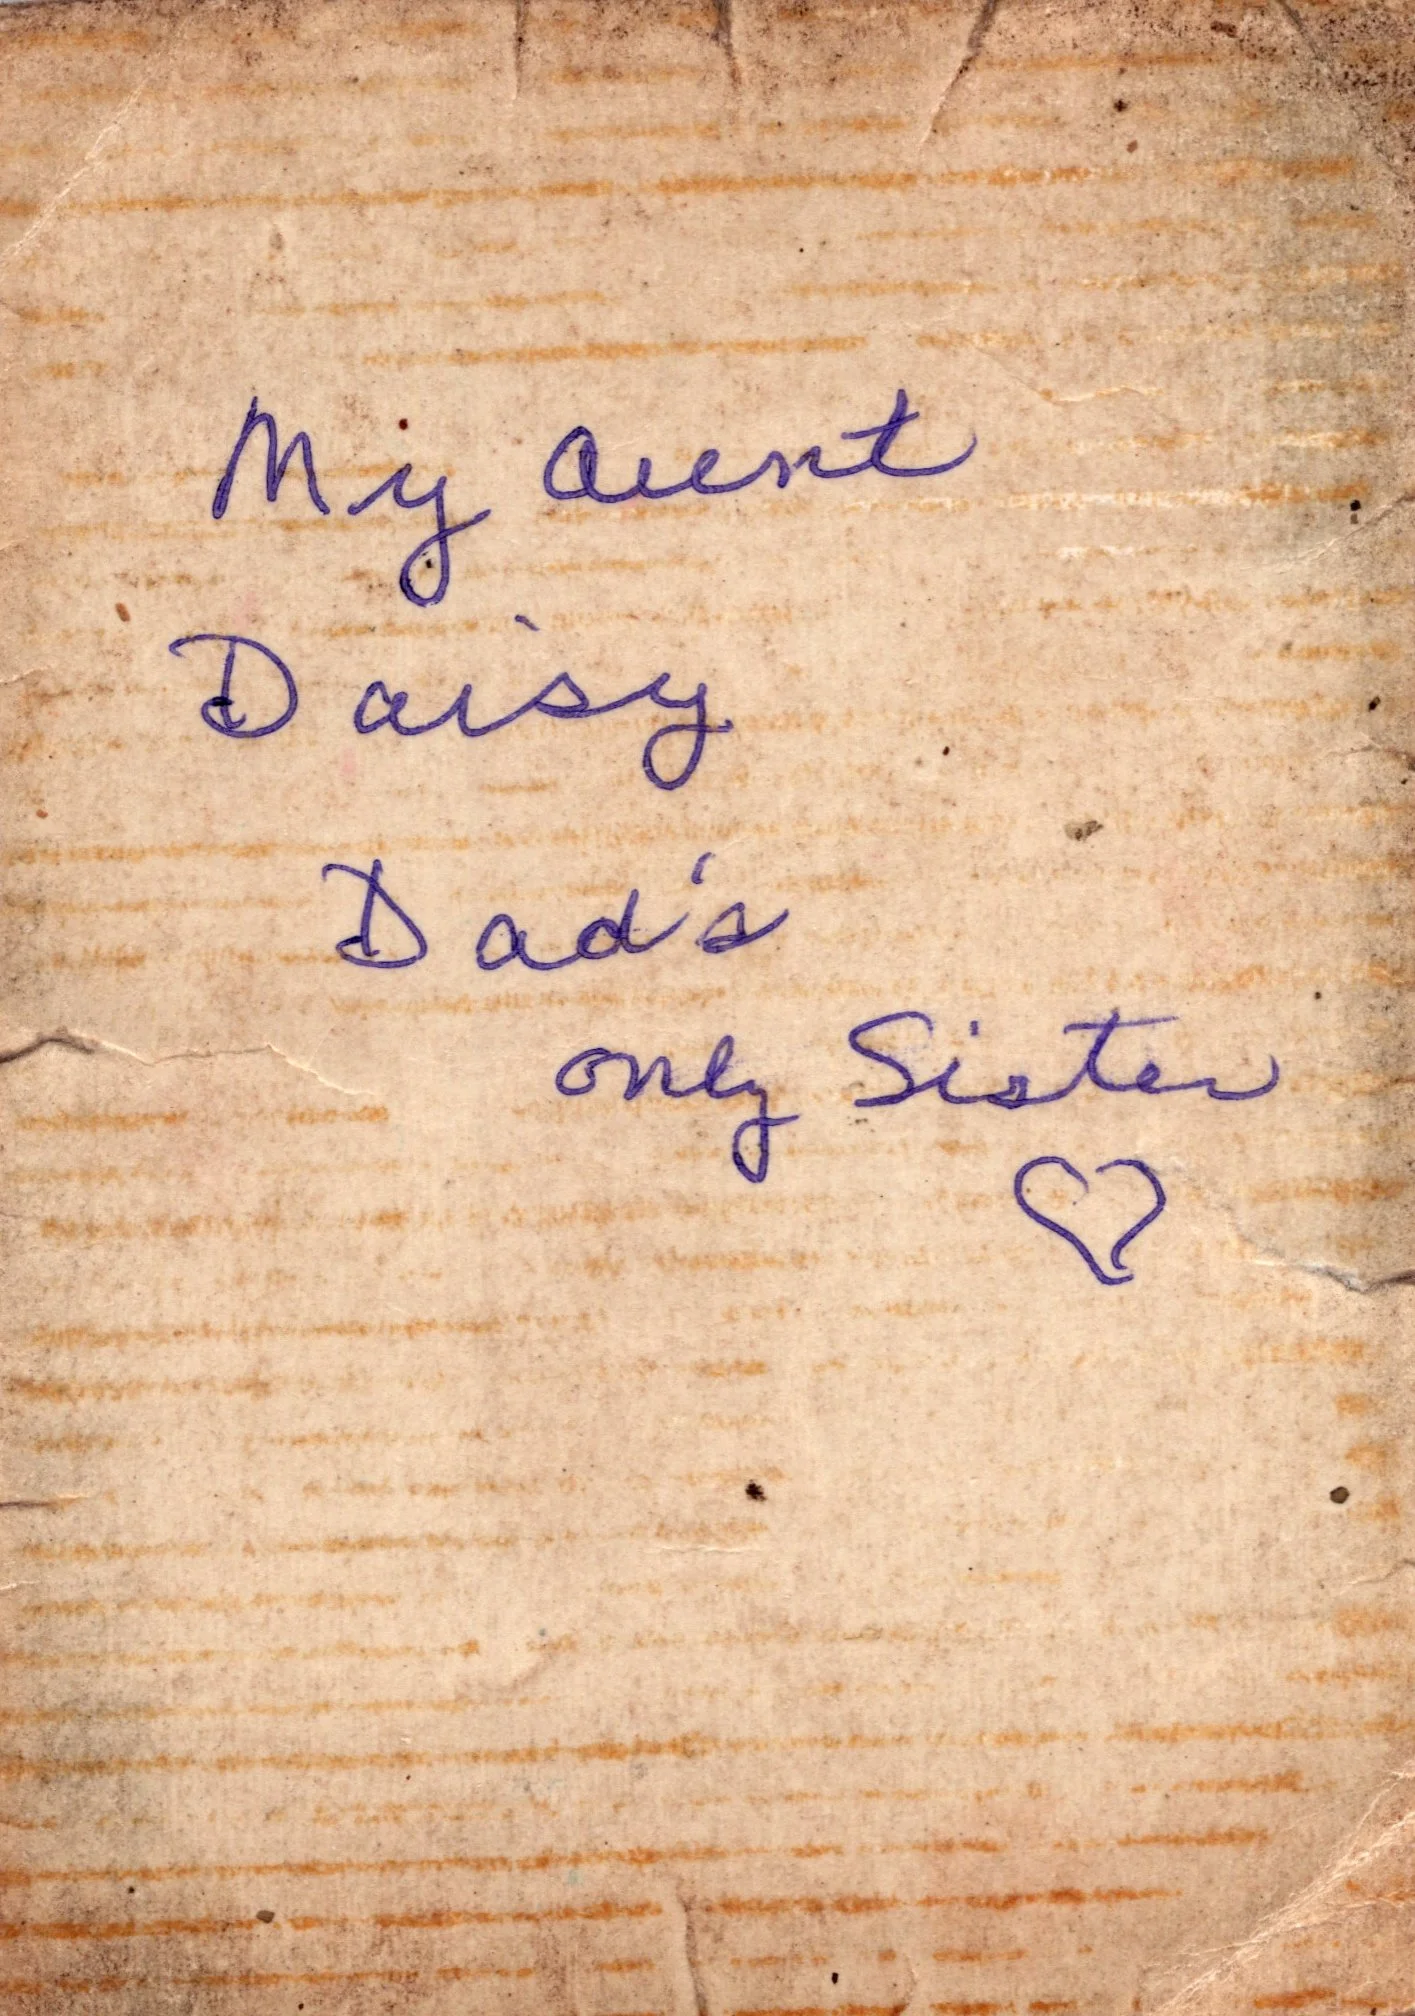 My Aunt
Daisy
Dad's
only Sister